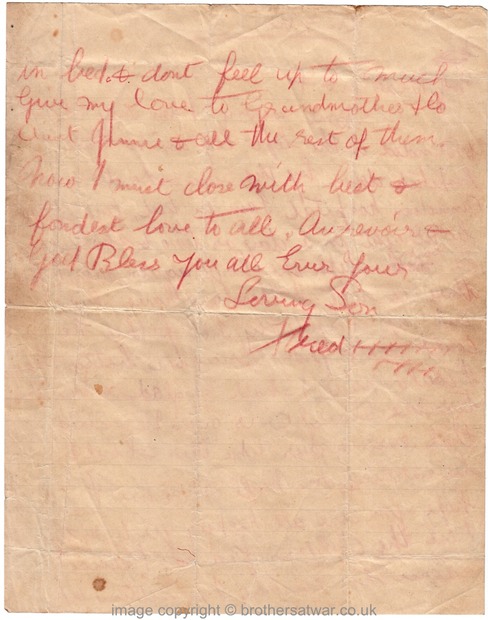 in bed. & dont feel up to much
Give my love to Grandmother Flo
Aunt Jinnie & all the rest of them.
Now I must close with best &
fondest love to all. Au revoir &
God Bless you all Ever your
Loving Son
Fred
image copyright © brothersatwar.co.uk